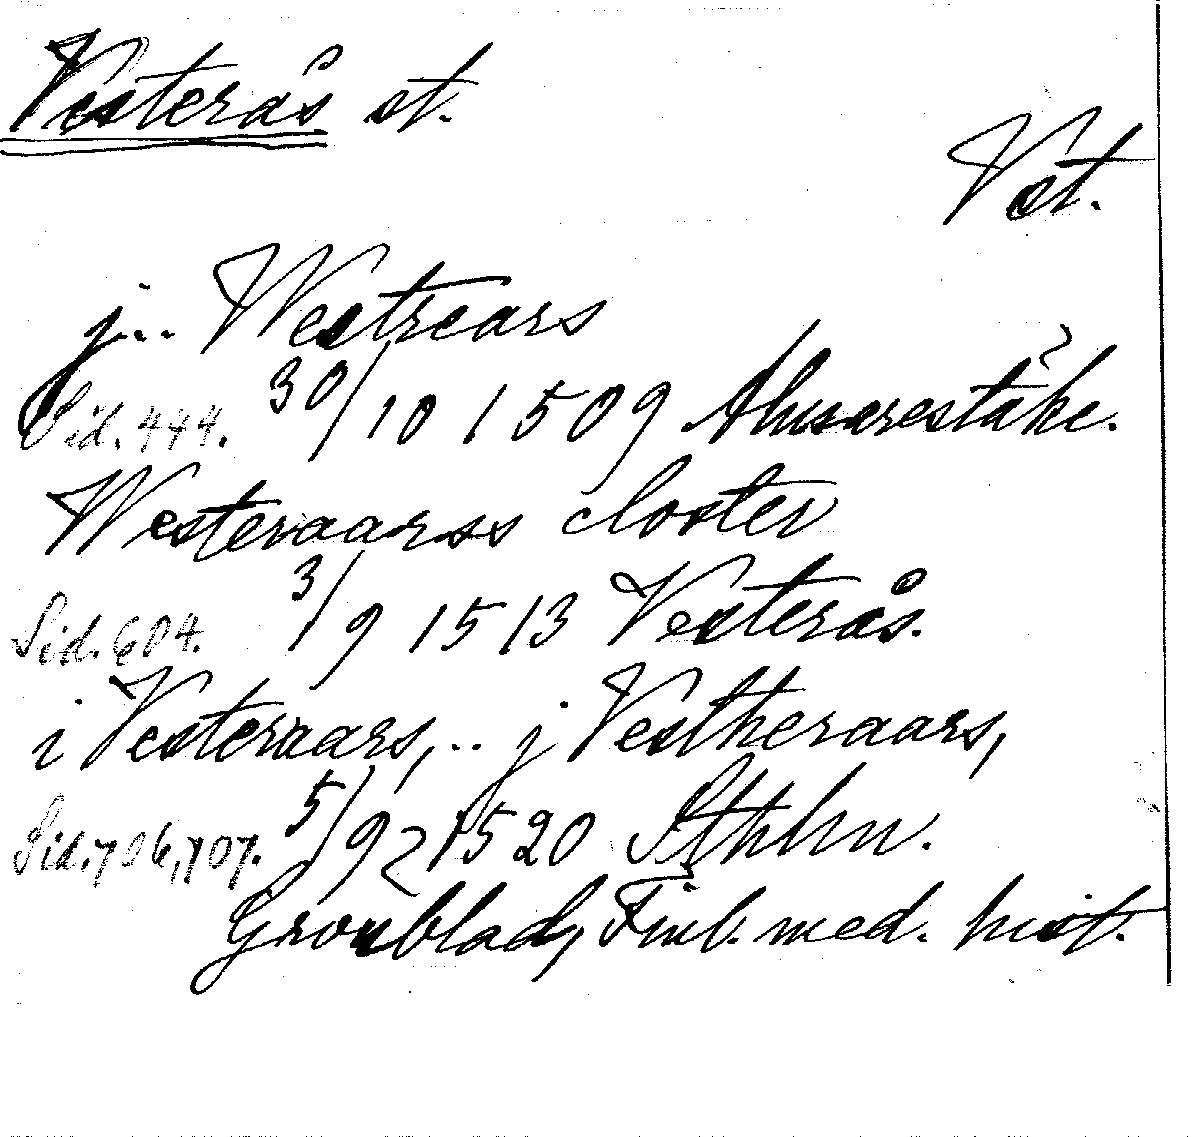 Vesterås st.
Vst.
j... Westrears
Sid. 444. 30/10 1509 Almarestäke.
Westeraarss closter
Sid. 604. 3/9 1513 Vesterås.
i Vesteraars, .. j Vestheraars,
Sid. 706, 707. 5/9 1520 Sthlm.
Grönblad, Finl. med. hist.